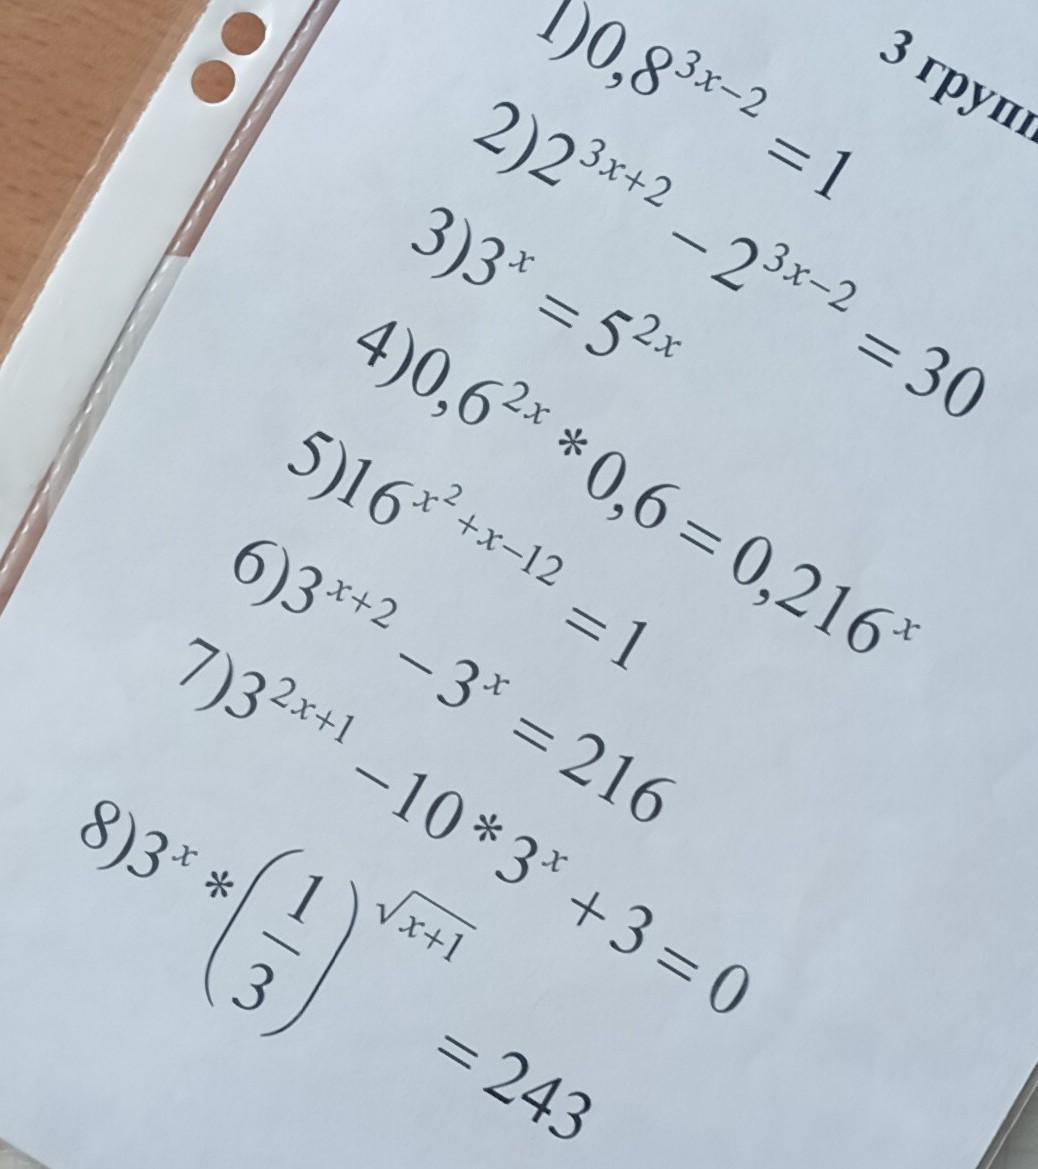 3
1)0,8^{3x-2} = 1
2)2^{3x+2} - 2^{3x-2} = 30
3)3^x = 5^{2x}
4)0,6^{2x} * 0,6 = 0,216^x
5)16^{x^2+x-12} = 1
6)3^{x+2} - 3^x = 216
7)3^{2x+1} - 10 * 3^x + 3 = 0
8)3^x * (1/3)^{√(x+1)} = 243